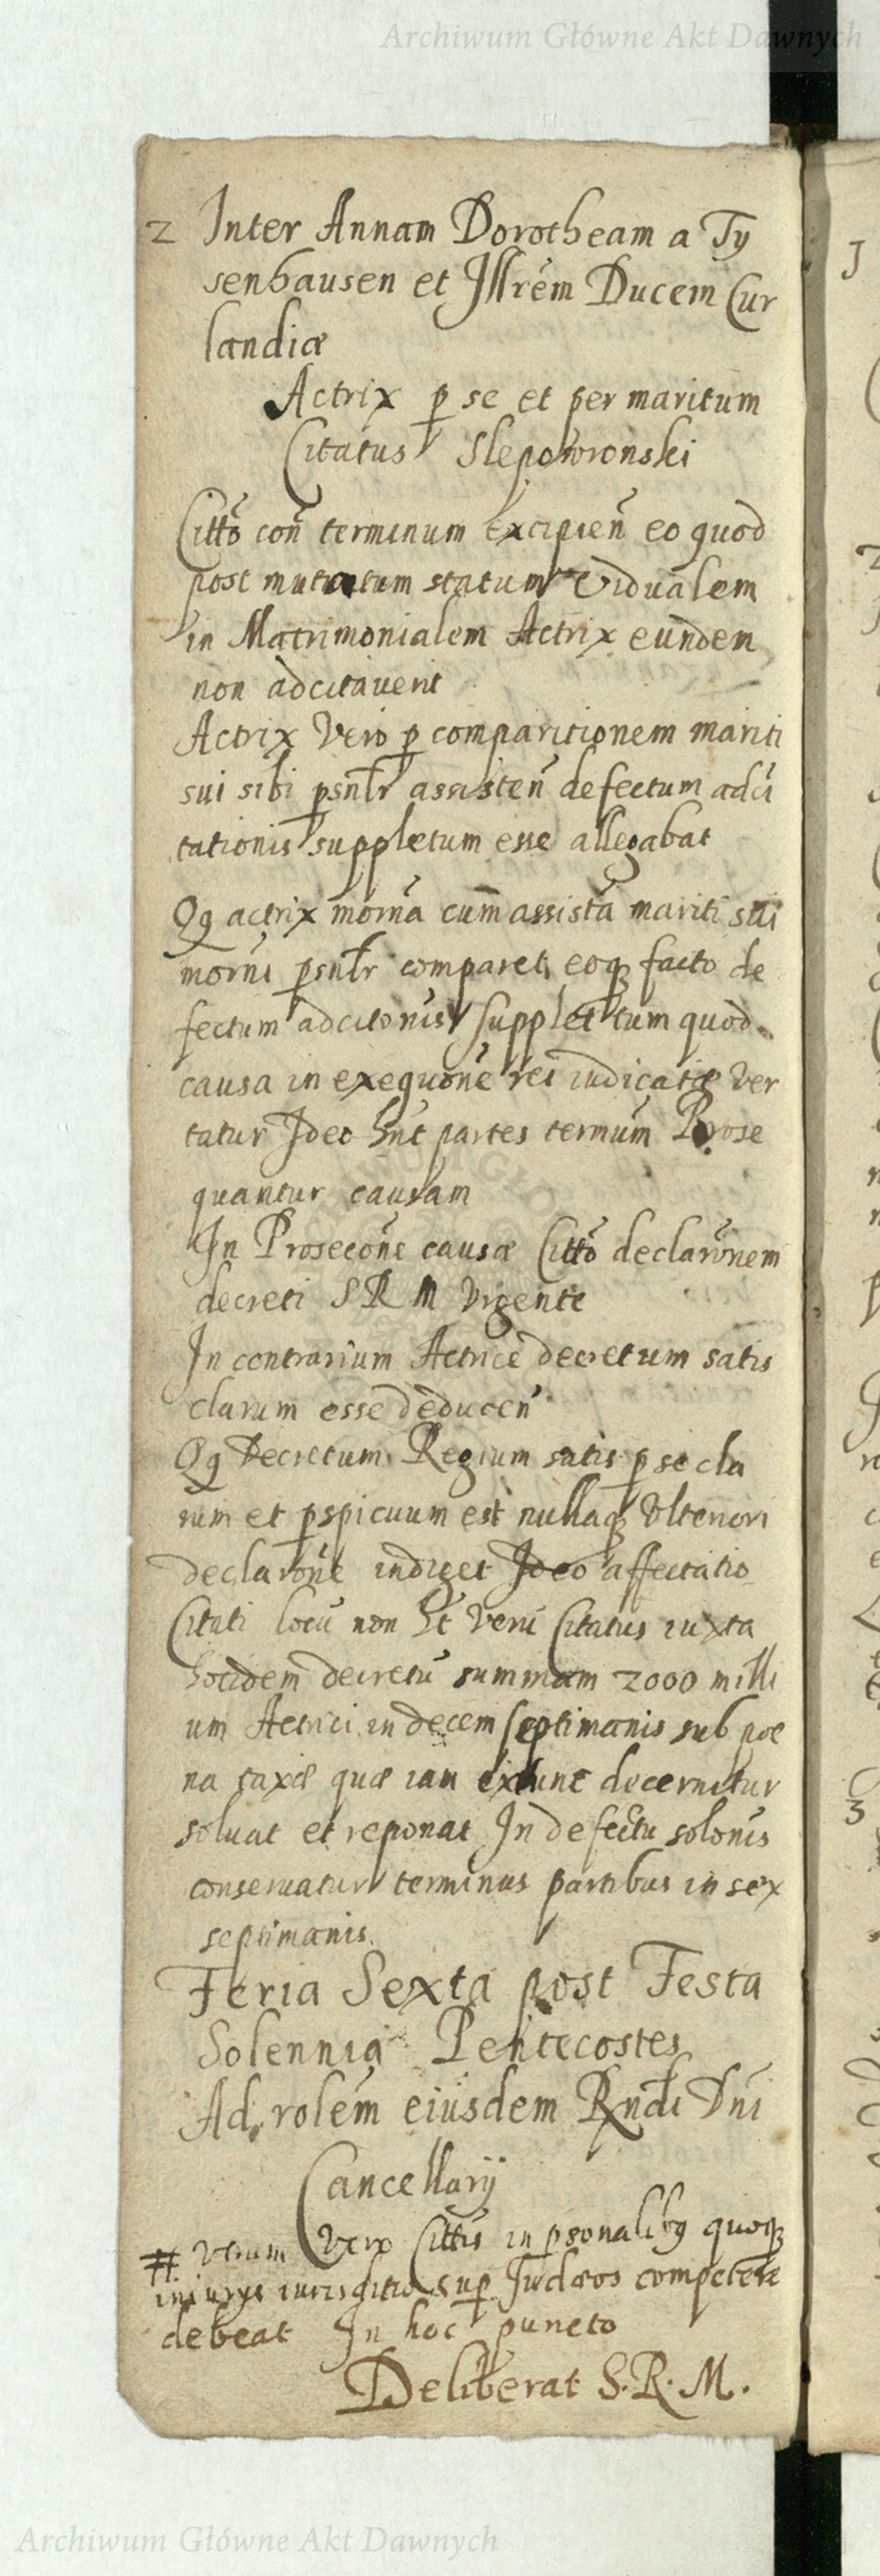 Archiwum Główne Akt Dawnych
2 Inter Annam Dorotheam a Ty
senhausen et Jllrem Ducem Cur
landiæ
Actrix p se et per maritum
Citatus Slepowronski
Citto con terminum excipien eo quod
post mutatum statum Vidualem
in Matrimonialem Actrix eundem
non adcitaverit
Actrix Vero p comparitionem mariti
sui sibi psnlr assisten defectum adci
tationis suppletum esse allegabat
Qq actrix moma cum assista mariti sui
morni psnlr comparet, eoq facto de
fectum adcitonis supplet tum quod
causa in exequone rei iudicatæ Ver
tatur Jdeo hnt partes termum Prose
quantur causam
In Prosecone causæ Citto declaronem
decreti S R M Vrgente
In contrarium Actrice decretum satis
clarum esse deducen
Qq Decretum Regium satis p se cla
rum et pspicuum est nullaq Vlteriori
declarone indiget Jdeo affectatio
Citati locu non ht Veru Citatus iuxta
hocidem decretu summam 2000 milli
um Actrici in decem septimanis sub poe
na taxæ quæ iam extunc decernitur
soluat et reponat In defectu solonis
conseruatur terminus partibus in sex
septimanis.
Feria Sexta post Festa
Solennia Pentecostes
Ad rolem eiusdem Rndi Dni
Cancellarij
# Vtrum Vero Cittus in psonalibq quoq
iniurys iurisditio sup Judæos competere
debeat In hoc puncto
Deliberat S. R. M.
J
3
Archiwum Główne Akt Dawnych